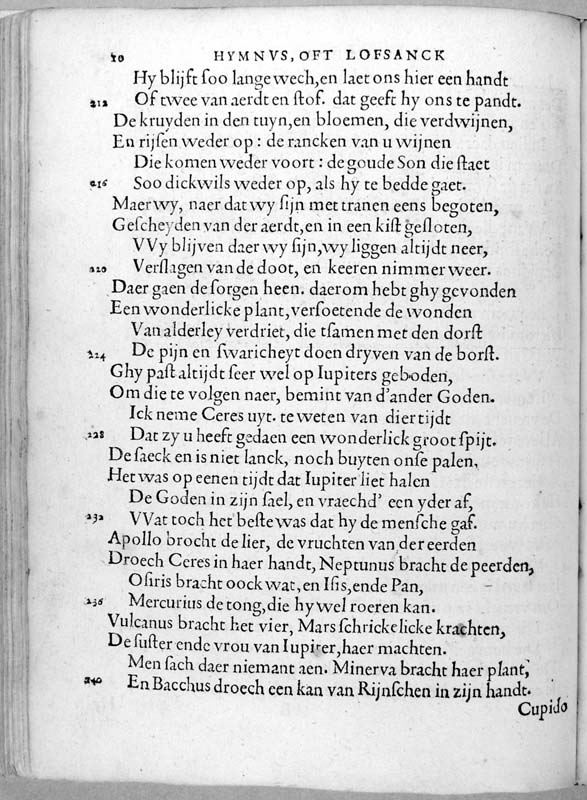 20 HYMNVS, OFT LOFSANCK
Hy blijft ſoo lange wech, en laet ons hier een handt
212 Of twee van aerdt en ſtof. dat geeft hy ons te pandt.
De kruyden in den tuyn, en bloemen, die verdwijnen,
En rijſen weder op : de rancken van u wijnen
Die komen weder voort : de goude Son die ſtaet
216 Soo dickwils weder op, als hy te bedde gaet.
Maer wy, naer dat wy ſijn met tranen eens begoten,
Geſcheyden van der aerdt, en in een kiſt geſloten,
VVy blijven daer wy ſijn, wy liggen altijdt neer,
220 Verſlagen van de doot, en keeren nimmer weer.
Daer gaen de ſorgen heen. daerom hebt ghy gevonden
Een wonderlicke plant, verſoetende de wonden
Van alderley verdriet, die tſamen met den dorſt
224 De pijn en ſwaricheyt doen dryven van de borſt.
Ghy paſt altijdt ſeer wel op Iupiters geboden,
Om die te volgen naer, bemint van d'ander Goden.
Ick neme Ceres uyt. te weten van dier tijdt
228 Dat zy u heeft gedaen een wonderlick groot ſpijt.
De ſaeck en is niet lanck, noch buyten onſe palen,
Het was op eenen tijdt dat Iupiter liet halen
De Goden in zijn ſael, en vraechd' een yder af,
232 VVat toch het beſte was dat hy de menſche gaf.
Apollo brocht de lier, de vruchten van der eerden
Droech Ceres in haer handt, Neptunus bracht de peerden,
Oſiris bracht oock wat, en Iſis, ende Pan,
236 Mercurius de tong, die hy wel roeren kan.
Vulcanus bracht het vier, Mars ſchrickelicke krachten,
De ſuſter ende vrou van Iupiter, haer machten.
Men ſach daer niemant aen. Minerva bracht haer plant,
240 En Bacchus droech een kan van Rijnſchen in zijn handt.
Cupido